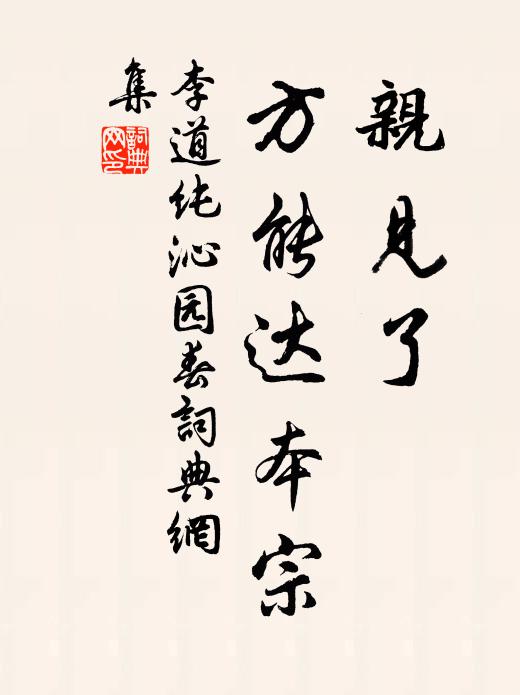 親見了
方能达本宗
李道纯沁园春詞典網
集
詞典
网印